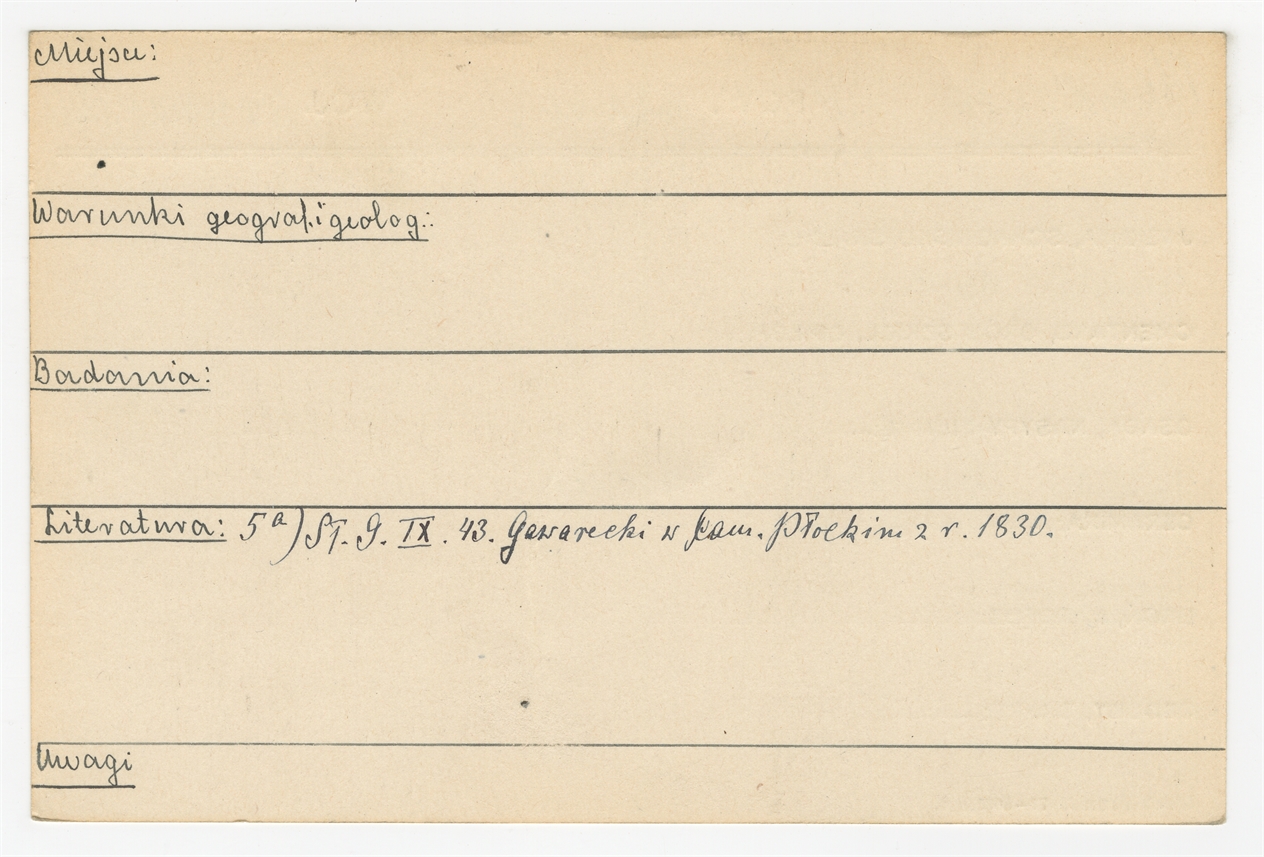 Miejsce:
Warunki geograf. i geolog.:
Badania:
Literatura: 5a) Sł. G. IX. 43. Gawarecki w Pam. Płockim z r. 1830.
Uwagi